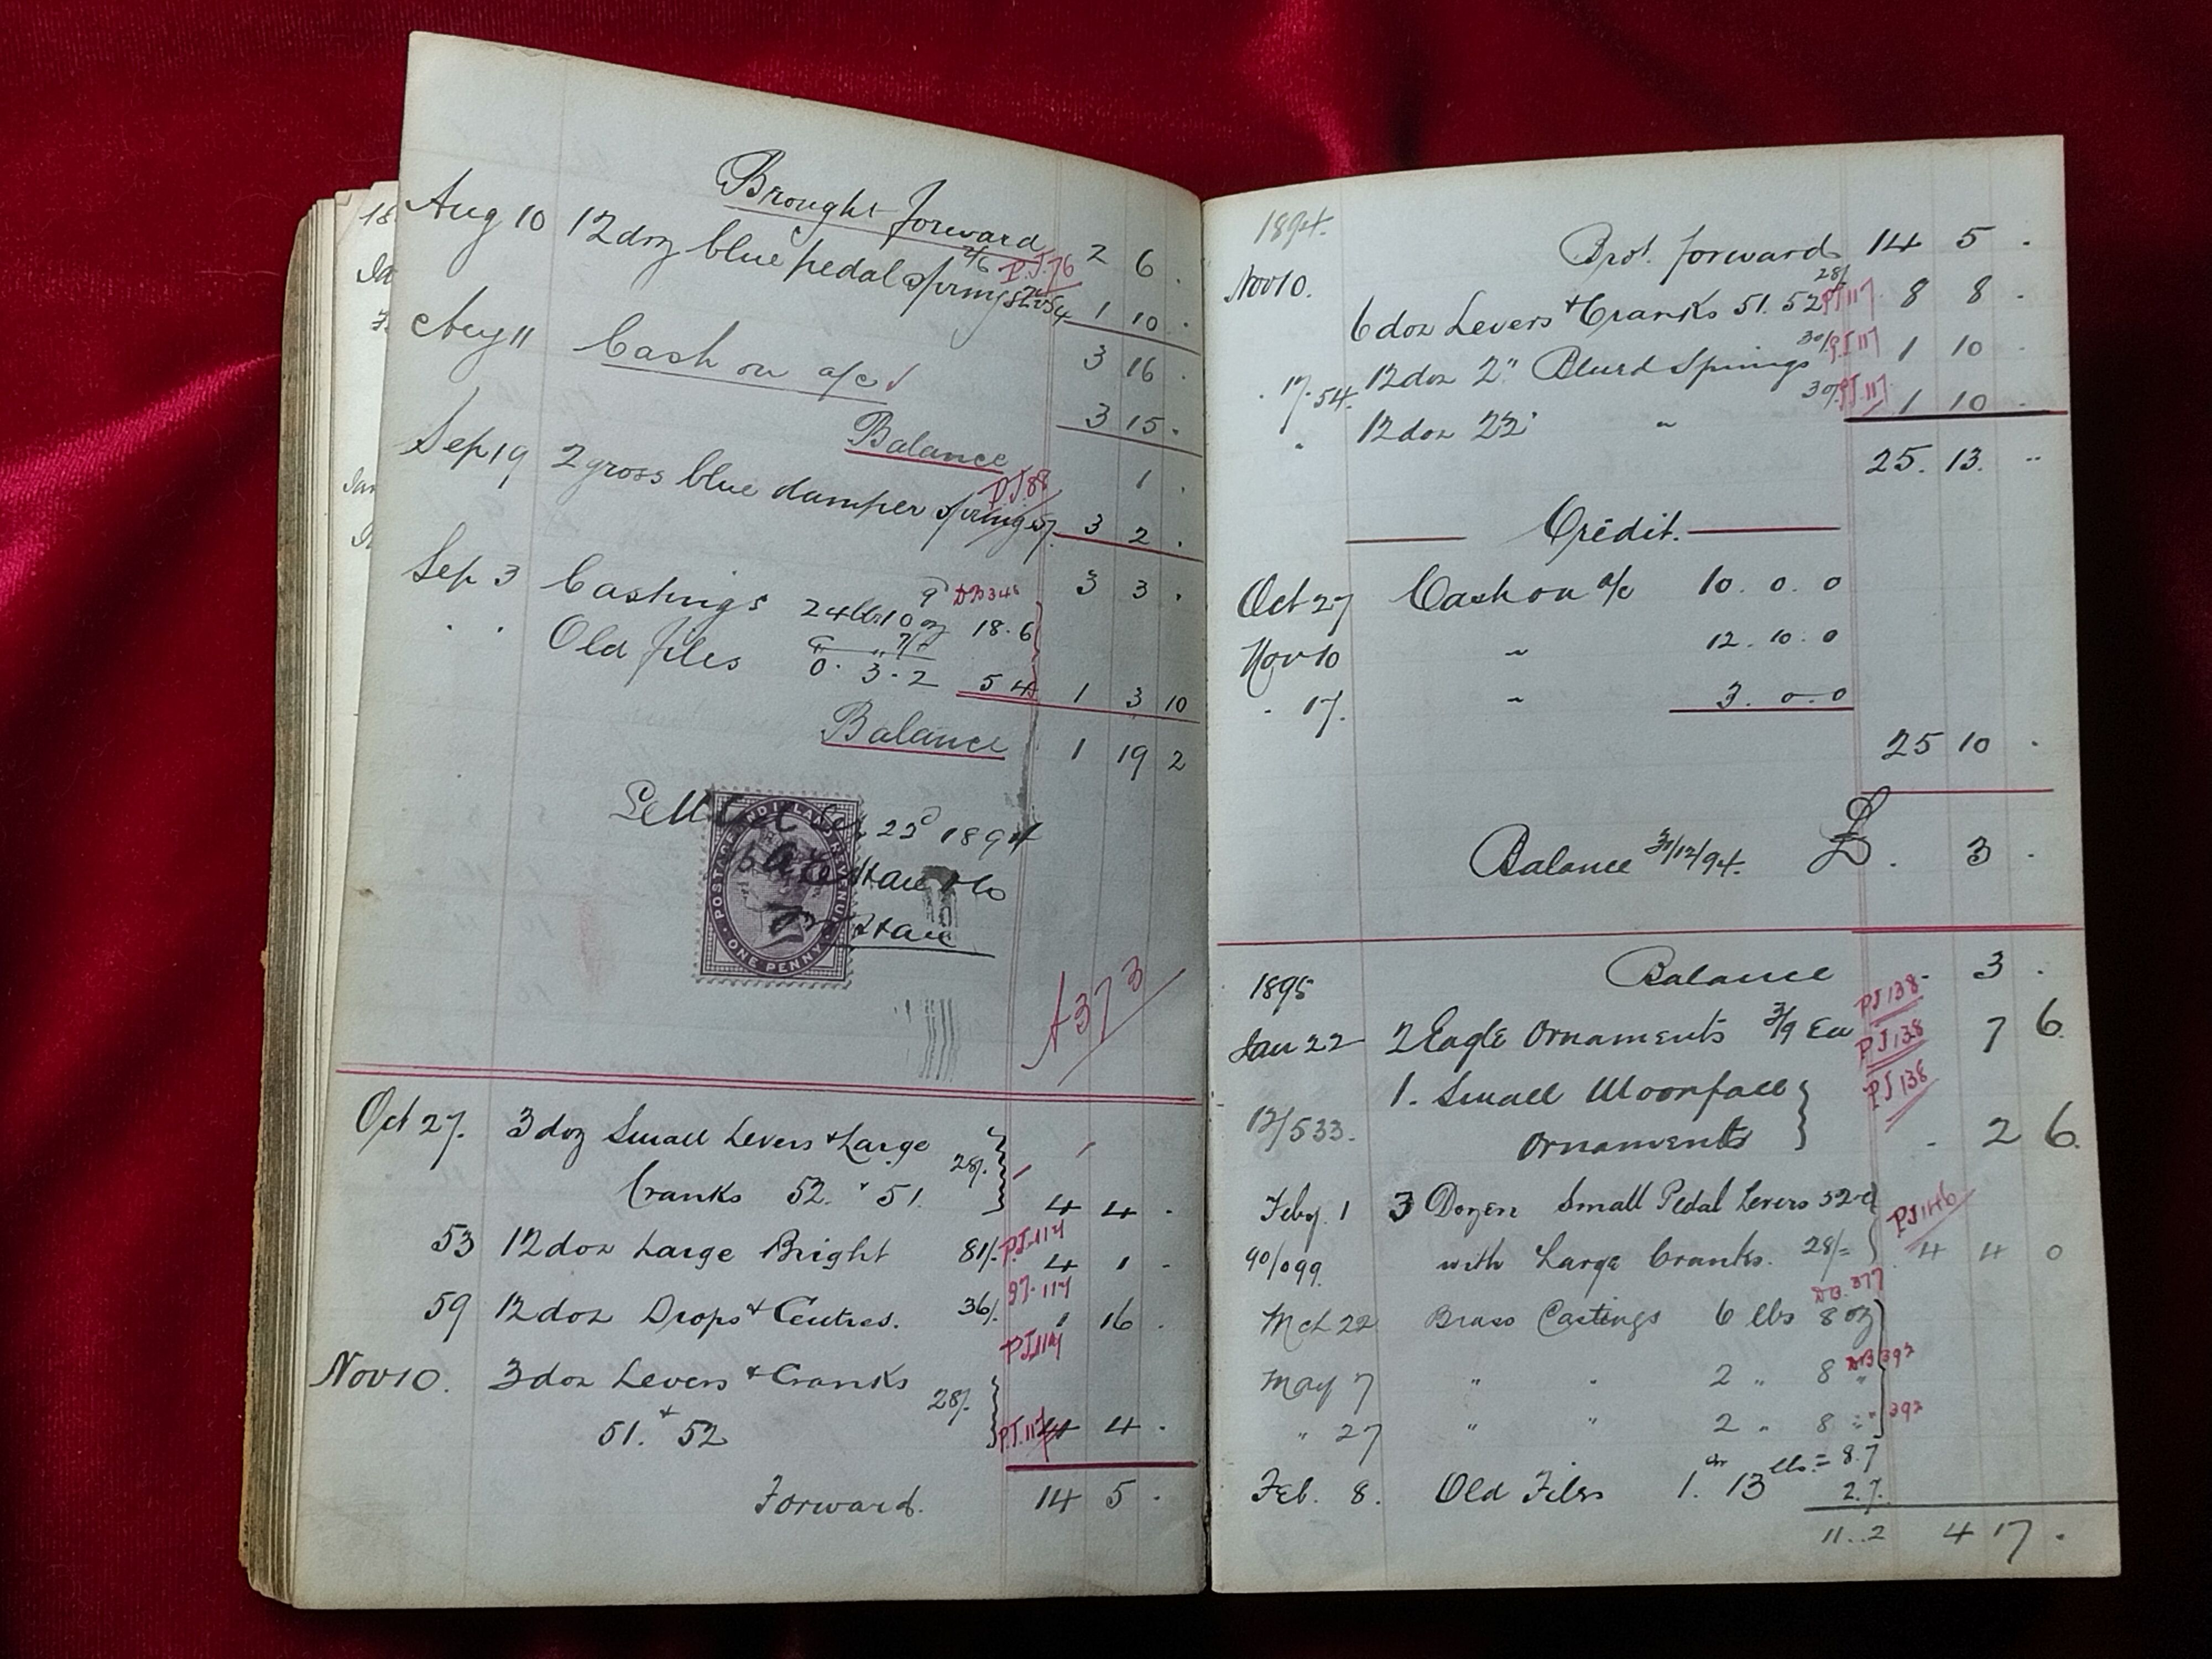 Brought forward 2 6 .
Aug 10 12 doz blue pedal springs 2/6 P.J.76 1 10 .
3 16 .
Aug 11 Cash on a/c 3 15 .
Balance 1 .
Sep 19 2 gross blue damper springs P.J.88 3 2 .
3 3 .
Sep 3 Castings 24 lbs 10 oz 9d DB 346 18.6
. . Old files
0. 3. 2 5 4 1 3 10
Balance 1 19 2
Settled 1894
POSTAGE AND INLAND REVENUE
ONE PENNY
A 373
Oct 27. 3 doz Small Levers & Large
Cranks 52. & 51. 28/. 4 4 .
53 12 doz Large Bright 81/. P.J.114 4 1 .
59 12 doz Drops & Centres. 36/. P.J.114 1 16 .
P.J.114
Nov 10. 3 doz Levers & Cranks
51. & 52 28/. P.J.117 4 4 .
Forward. 14 5 .
1894.
Brot. forward 14 5 .
Nov 10. 6 doz Levers & Cranks 51. 52 28/ PJ 117 8 8 .
. 17. 54. 12 doz 2" Blued Springs 30/. P.J 117 1 10 .
" 12 doz 22 " 30/. P.J.117 1 10 .
25. 13. "
Credit.
Oct 27 Cash on a/c 10. 0. 0
Nov 10 " 12. 10. 0
. 17. " 3. 0. 0
25 10 .
Balance 31/12/94. £ . 3 .
1895 Balance . 3 .
Jan 22 2 Eagle Ornaments 3/9 Ea PJ 138 7 6.
PJ 138
1. Small Moonface PJ 138
12/533. Ornaments . 2 6.
Feby. 1 3 Dozen Small Pedal Levers 52
90/099. with Large Cranks. 28/= PJ 146 4 4 0
Mch 22 Brass Castings 6 lbs 8 oz DB. 377
May 7 " " 2 " 8 " DB 392
" 27 " " 2 " 8 " 392
Feb. 8. Old Files 1. 13 lbs. = 8.7
2.7.
11..2 4 17 .